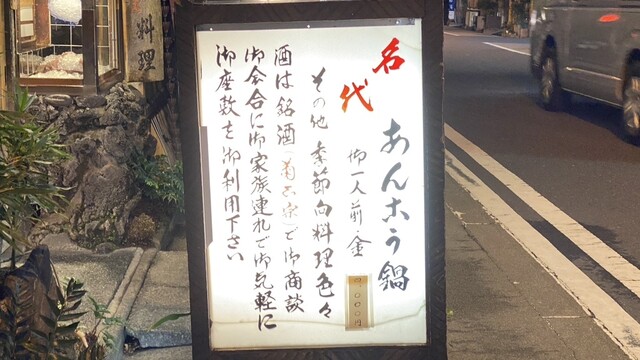 名代
あんホう鍋
御一人前金
その他季節向料理色々
酒は銘酒　　　で御商談
御会合に御家族連れで御気軽に
御座敷を御利用下さい
料理